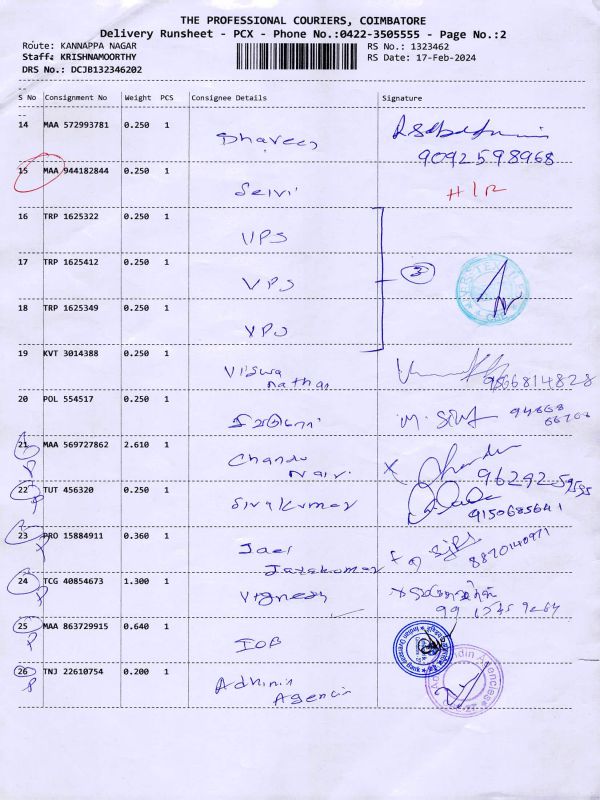 THE PROFESSIONAL COURIERS, COIMBATORE
Delivery Runsheet - PCX - Phone No.:0422-3505555 - Page No.:2
Route: KANNAPPA NAGAR
RS No.: 1323462
Staff: KRISHNAMOORTHY
RS Date: 17-Feb-2024
DRS No.: DCJB132346202
S No Consignment No Weight PCS Consignee Details Signature
14 MAA 572993781 0.250 1
9092598968
15 MAA 944182844 0.250 1 Selvi
16 TRP 1625322 0.250 1 VPS
17 TRP 1625412 0.250 1 VPS 3
18 TRP 1625349 0.250 1 VPS
19 KVT 3014388 0.250 1 Viswa nathan
9566814828
20 POL 554517 0.250 1
21 MAA 569727862 2.610 1 Chandu
22 TUT 456320 0.250 1 Sivakumar
9150685641
23 PRO 15884911 0.360 1 Jael Jayakumar
8870140971
24 TCG 40854673 1.300 1 Vignesh
25 MAA 863729915 0.640 1 IOB
26 TNJ 22610754 0.200 1